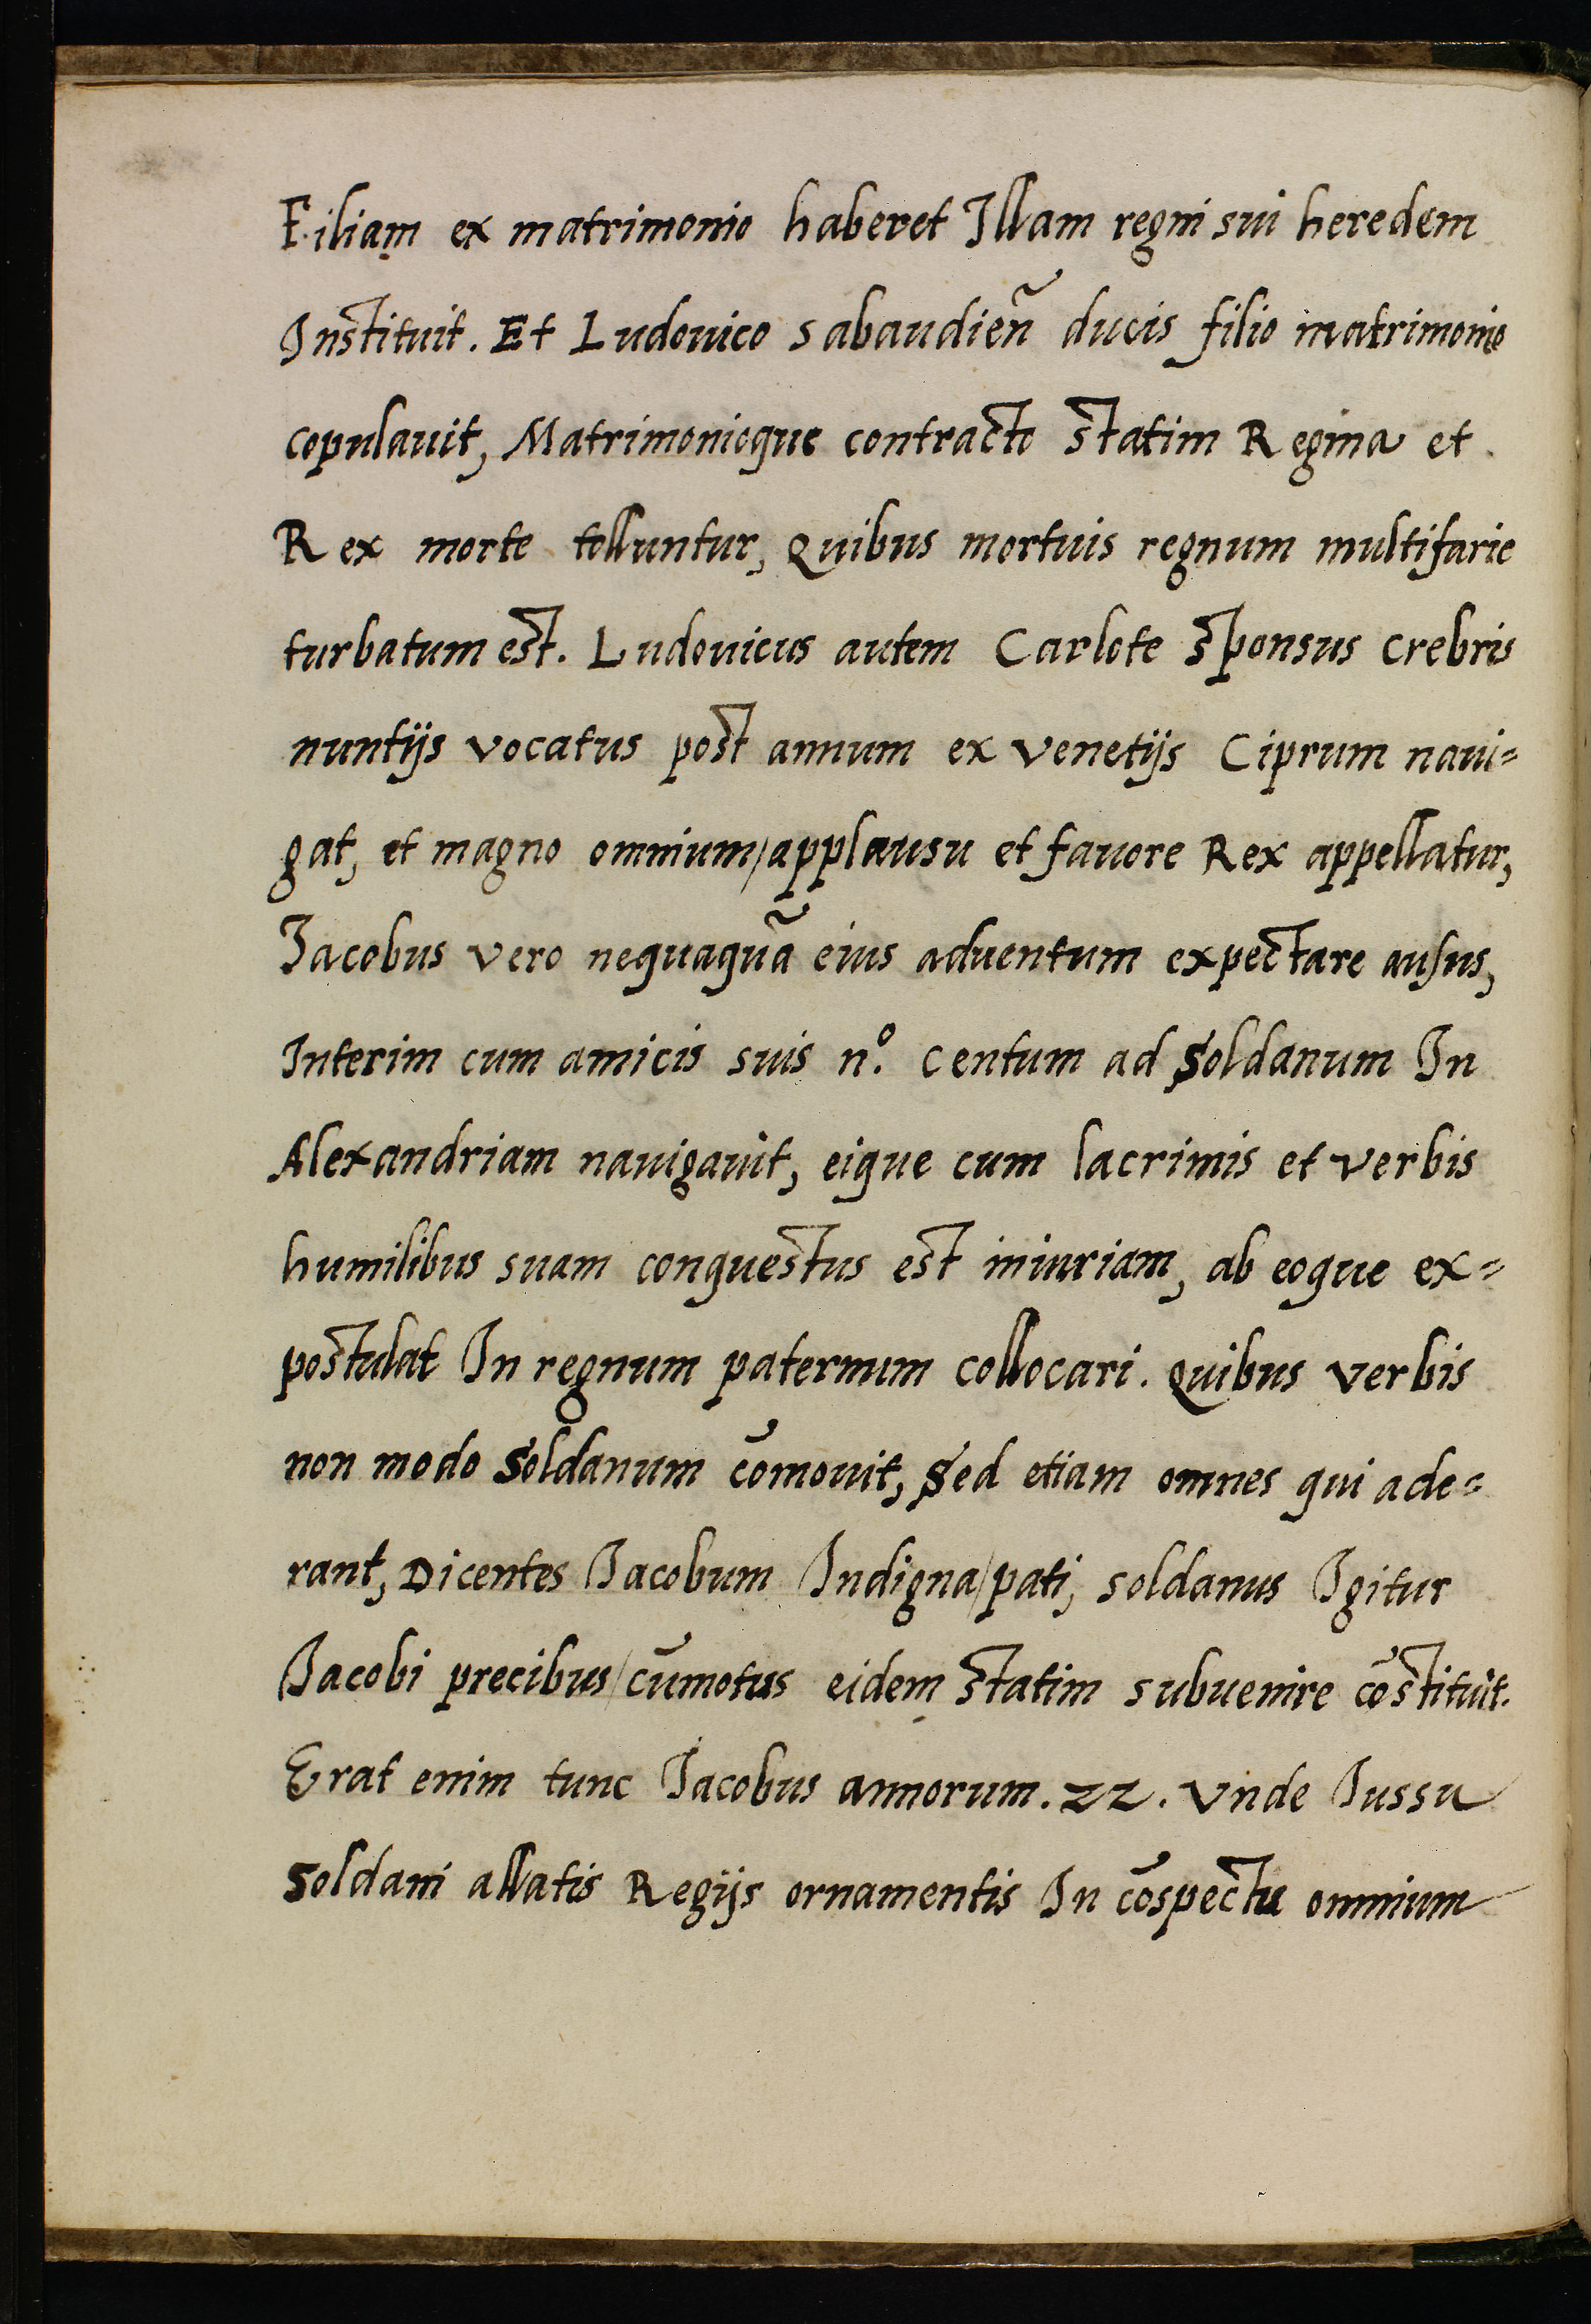 Filiam ex matrimonio haberet Illam regni sui heredem
Instituit. Et Ludouico sabaudien̄ ducis filio matrimonio
copulauit, Matrimonioque contracto statim Regina et
Rex morte tolluntur, Quibus mortuis regnum multifarie
turbatum est. Ludouicus autem Carlote sponsus crebris
nuntijs vocatus post annum ex venetijs Ciprum naui=
gat, et magno omnium/applausu et fauore Rex appellatur,
Jacobus vero nequaquā eius aduentum expectare ausus,
Interim cum amicis suis n.º centum ad Soldanum In
Alexandriam nauigauit, eique cum lacrimis et verbis
humilibus suam conquestus est iniuriam, ab eoque ex=
postulat In regnum paternum collocari. Quibus verbis
non modo Soldanum cōmouit, Sed etiam omnes qui ade=
rant, Dicentes Iacobum Indigna/pati, soldanus Igitur
Iacobi precibus/cūmotus eidem statim subuenire cōstituit.
Erat enim tunc Iacobus annorum. 22. Vnde Iussu
Soldani allatis Regijs ornamentis In cōspectu omnium